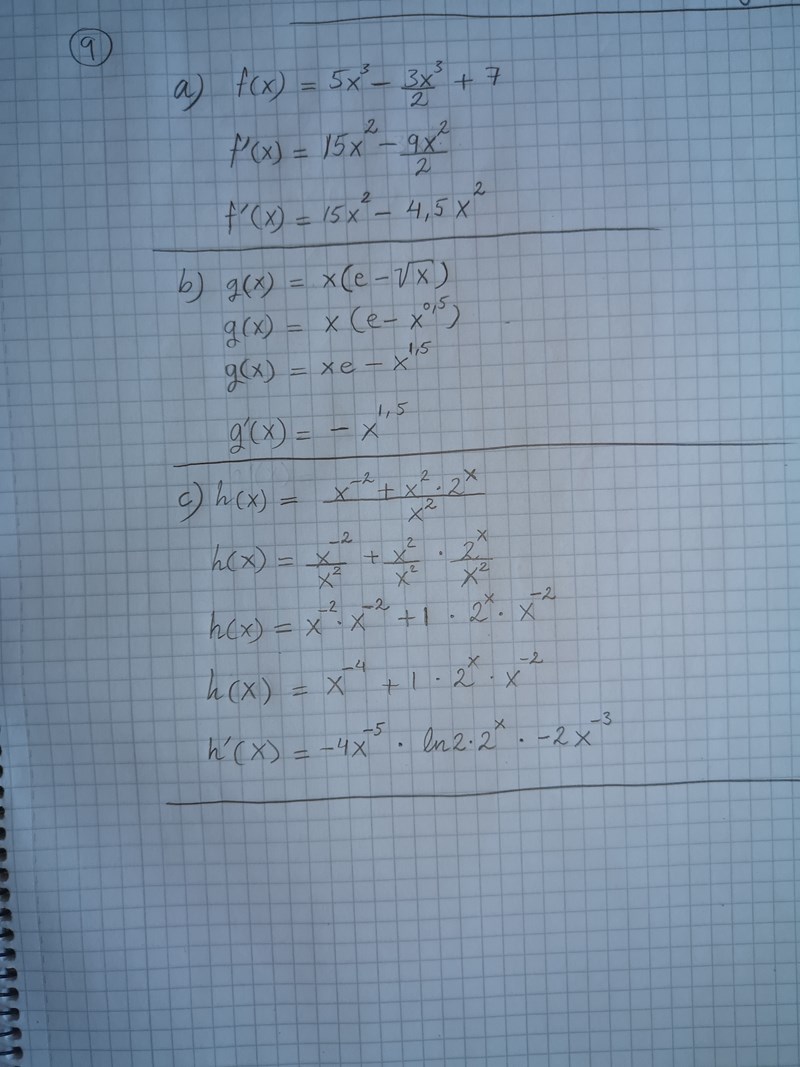 9
a) f(x) = 5x³ - 3x³/2 + 7
f'(x) = 15x² - 9x²/2
f'(x) = 15x² - 4,5x²
b) g(x) = x(e - √x)
g(x) = x(e - x^0,5)
g(x) = xe - x^1,5
g'(x) = - x^1,5
c) h(x) = (x^-2 + x² · 2^x)/x²
h(x) = x^-2/x² + x²/x² · 2^x/x²
h(x) = x^-2 · x^-2 + 1 · 2^x · x^-2
h(x) = x^-4 + 1 · 2^x · x^-2
h'(x) = -4x^-5 · ln2 · 2^x · -2x^-3